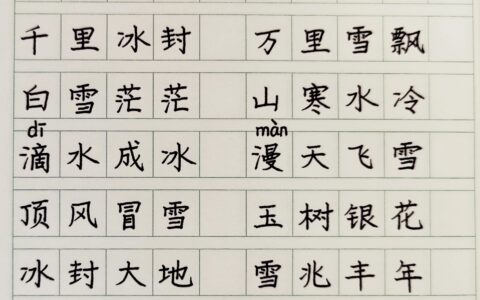 千里冰封 万里雪飘
白雪茫茫 山寒水冷
dī màn
滴水成冰 漫天飞雪
顶风冒雪 玉树银花
冰封大地 雪兆丰年